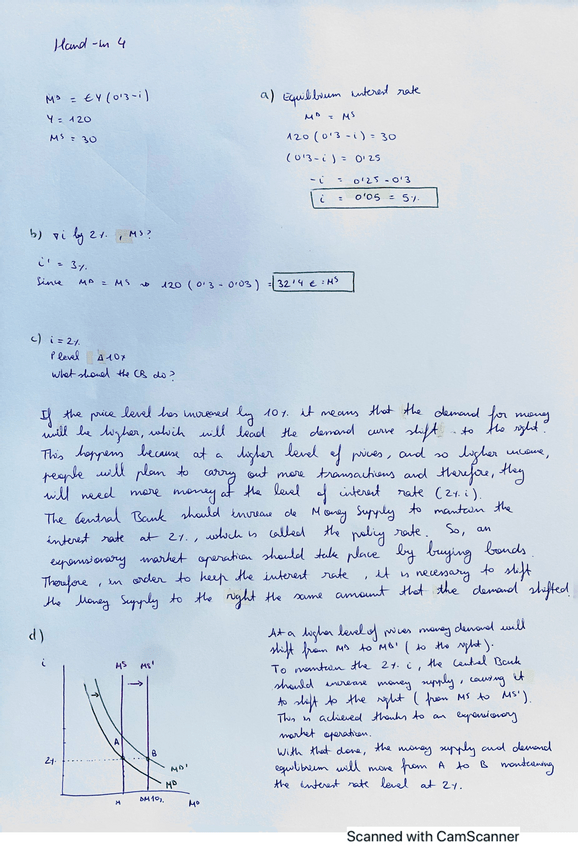 Hand-in 4
M^D = €Y (0'3-i)
Y = 120
M^S = 30
a) Equilibrium interest rate
M^D = M^S
120 (0'3-i) = 30
(0'3-i) = 0'25
-i = 0'25-0'3
i = 0'05 = 5%
b) ∇i by 2%, M^S?
i' = 3%
Since M^D = M^S → 120 (0'3 - 0'03) = 32'4 € = M^S
c) i = 2%
P level Δ10%
What should the CB do?
If the price level has increased by 10% it means that the demand for money
will be higher, which will lead the demand curve shift to the right.
This happens because at a higher level of prices, and so higher income,
people will plan to carry out more transactions and therefore, they
will need more money at the level of interest rate (2% i).
The Central Bank should increase de Money Supply to mantain the
interest rate at 2%, which is called the policy rate. So, an
expansionary market operation should take place by buying bonds.
Therefore, in order to keep the interest rate, it is necessary to shift
the Money Supply to the right the same amount that the demand shifted.
d)
i
M^S M^S'
A
B
2%
M^D'
M^D
M
ΔM10%
M^D
At a higher level of prices money demand will
shift from M^D to M^D' (to the right).
To mantain the 2% i, the Central Bank
should increase money supply, causing it
to shift to the right (from M^S to M^S').
This is achieved thanks to an expansionary
market operation.
With that done, the money supply and demand
equilibrium will move from A to B mantaining
the interest rate level at 2%.
Scanned with CamScanner